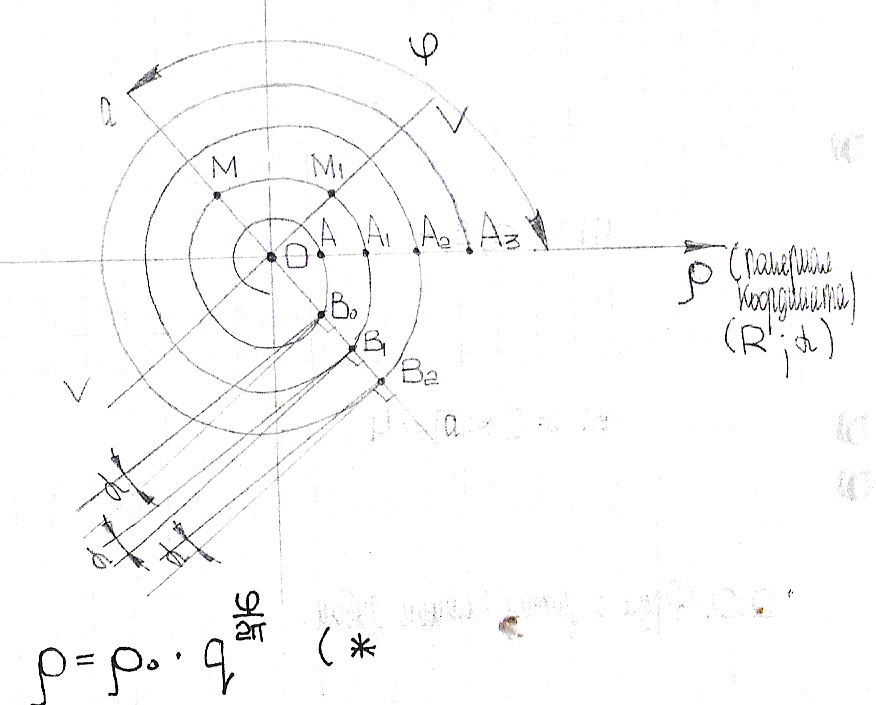 φ
a
V
M
M₁
O
A
A₁
A₂
A₃
ρ
координата)
(R; α)
B₀
B₁
B₂
V
a
α
α
α
ρ = ρ₀ · q^(φ/2π) (*